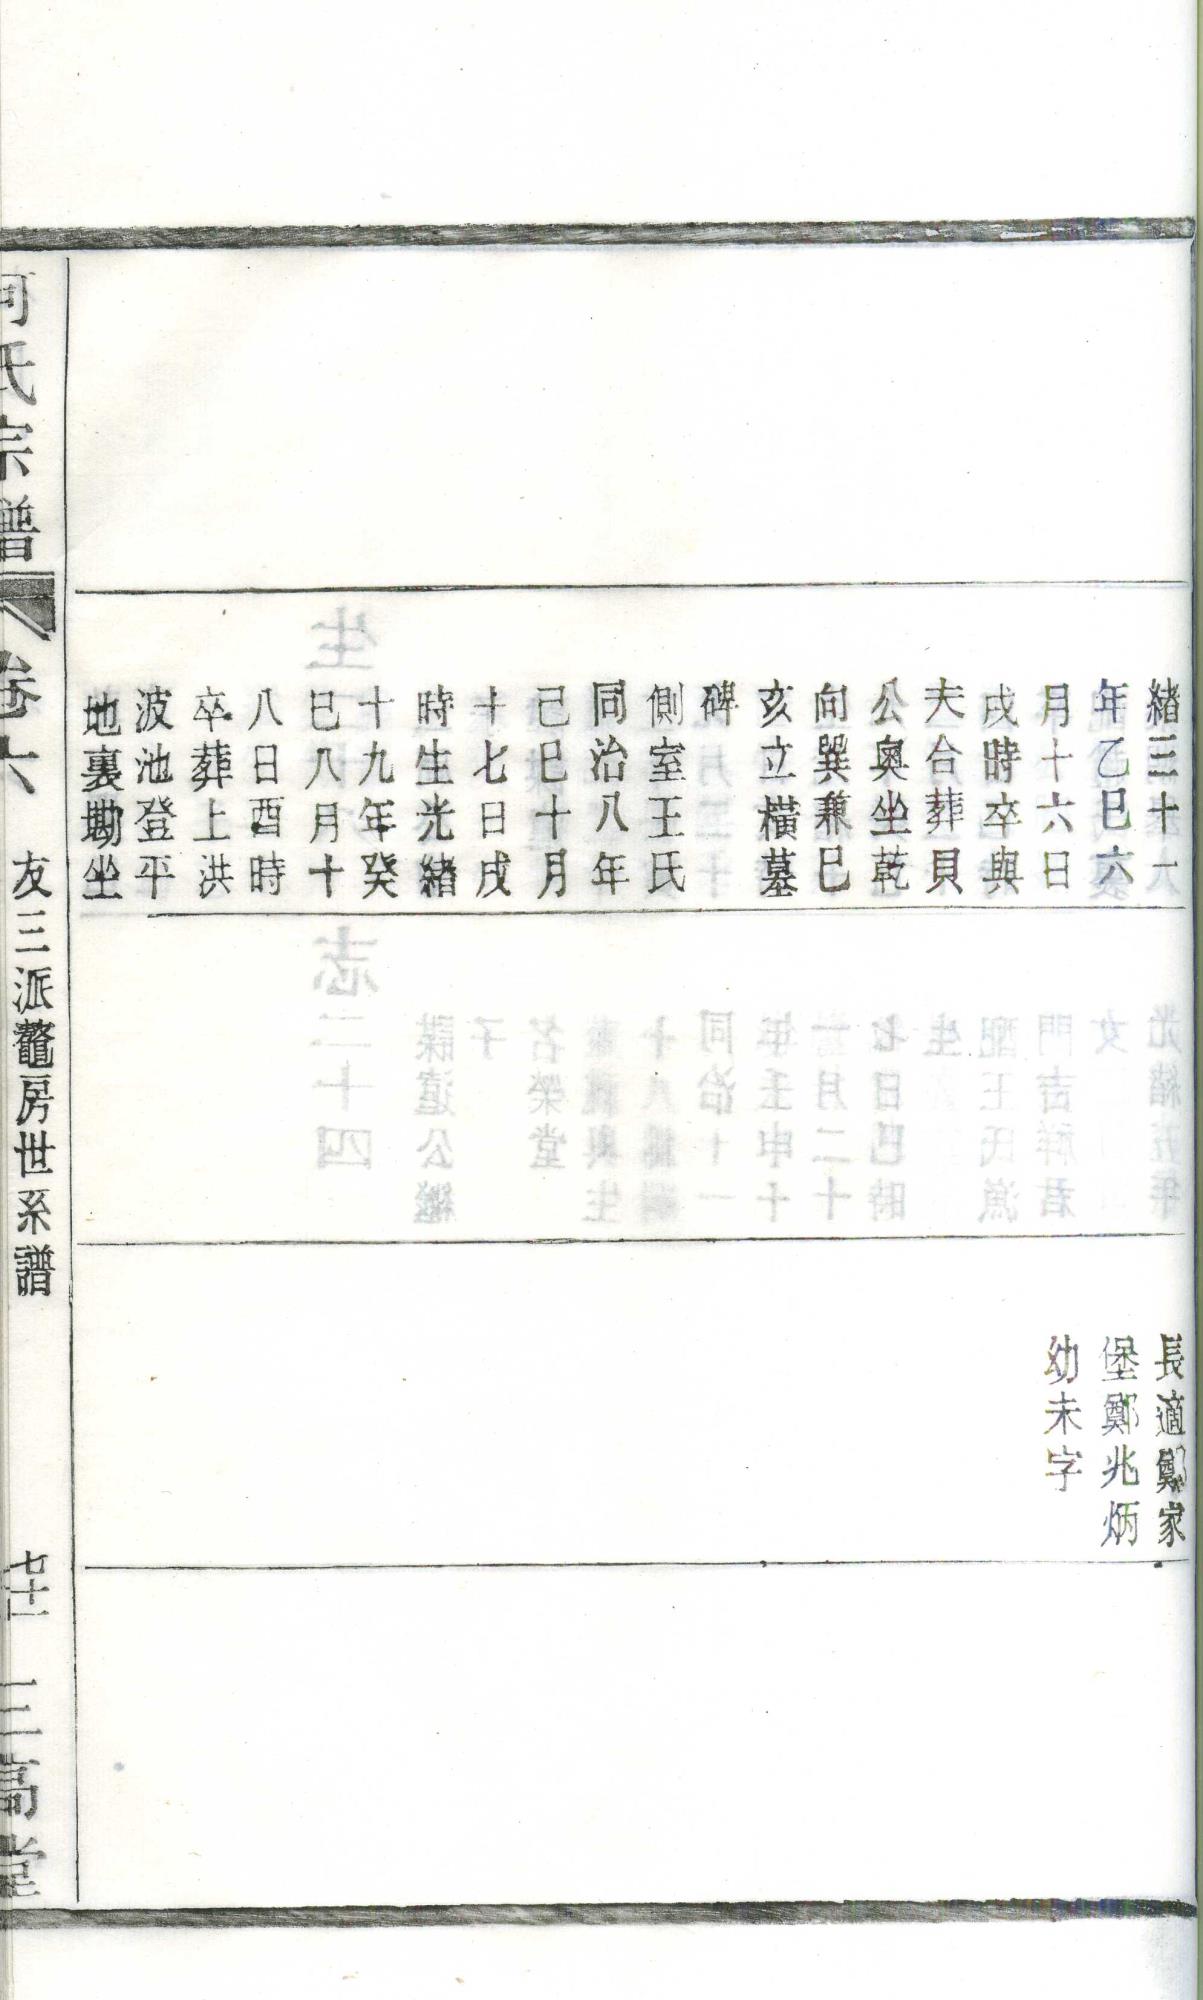 緒三十一
年乙巳六
月十六日
戌時卒與
夫合葬貝
公奥坐乾
向巽兼巳
亥立橫墓
碑
側室王氏
同治八年
己巳十月
十七日戌
時生光緒
十九年癸
巳八月十
八日酉時
卒葬上洪
波池登平
地裏墈坐
長適鄭家
堡鄭兆炳
幼未字
何氏宗譜
卷六
友三派鼇房世系譜
七十一
三高堂